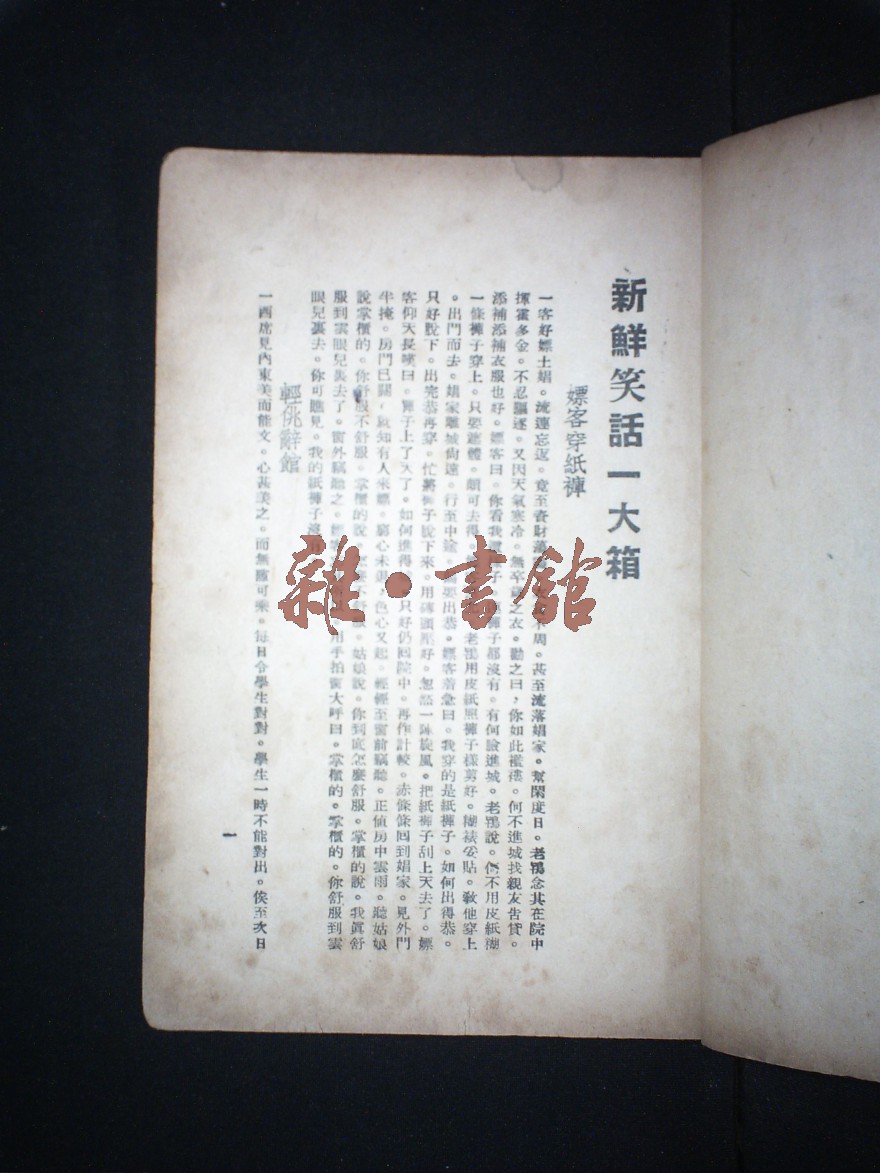 新鮮笑話一大箱
嫖客穿紙褲
一客好嫖土娼。流連忘返。竟至資財蕩 周。甚至流落娼家。幫閑度日。老鴇念其在院中
揮霍多金。不忍驅逐。又因天氣寒冷。 衣。勸之曰，你如此襤褸。何不進城找親友告貸。
添補添補衣服也好。嫖客曰。你看我 子。 褲子都沒有。有何臉進城。老鴇說。何不用皮紙糊
一條褲子穿上。只要遮體。頗可去得。 老鴇用皮紙照褲子樣剪好。糊裱妥貼。敎他穿上
。出門而去。娼家離城尙遠。行至中途 要出恭。嫖客着急曰。我穿的是紙褲子。如何出得恭。
只好脫下。出完恭再穿。忙將褲子脫下來。用磚頭壓好。忽然一陣旋風。把紙褲子刮上天去了。嫖
客仰天長嘆曰。褲子上了天了。如何進得 只好仍回院中。再作計較。赤條條回到娼家。見外門
半掩。房門已關，就知有人來嫖。窮心未 色心又起。輕輕至窗前竊聽。正値房中雲雨。聽姑娘
說掌櫃的。你舒服不舒服。掌櫃的說。 舒服。姑娘說。你到底怎麼舒服。掌櫃的說。我眞舒
服到雲眼兒裏去了。窗外竊聽之 用手拍窗大呼曰。掌櫃的。掌櫃的。你舒服到雲
眼兒裏去。你可瞧見。我的紙褲子沒有
輕佻辭館
一西席見內東美而能文。心甚美之。而無隙可乘。每日令學生對對。學生一時不能對出。俟至次日
一
雜·書館